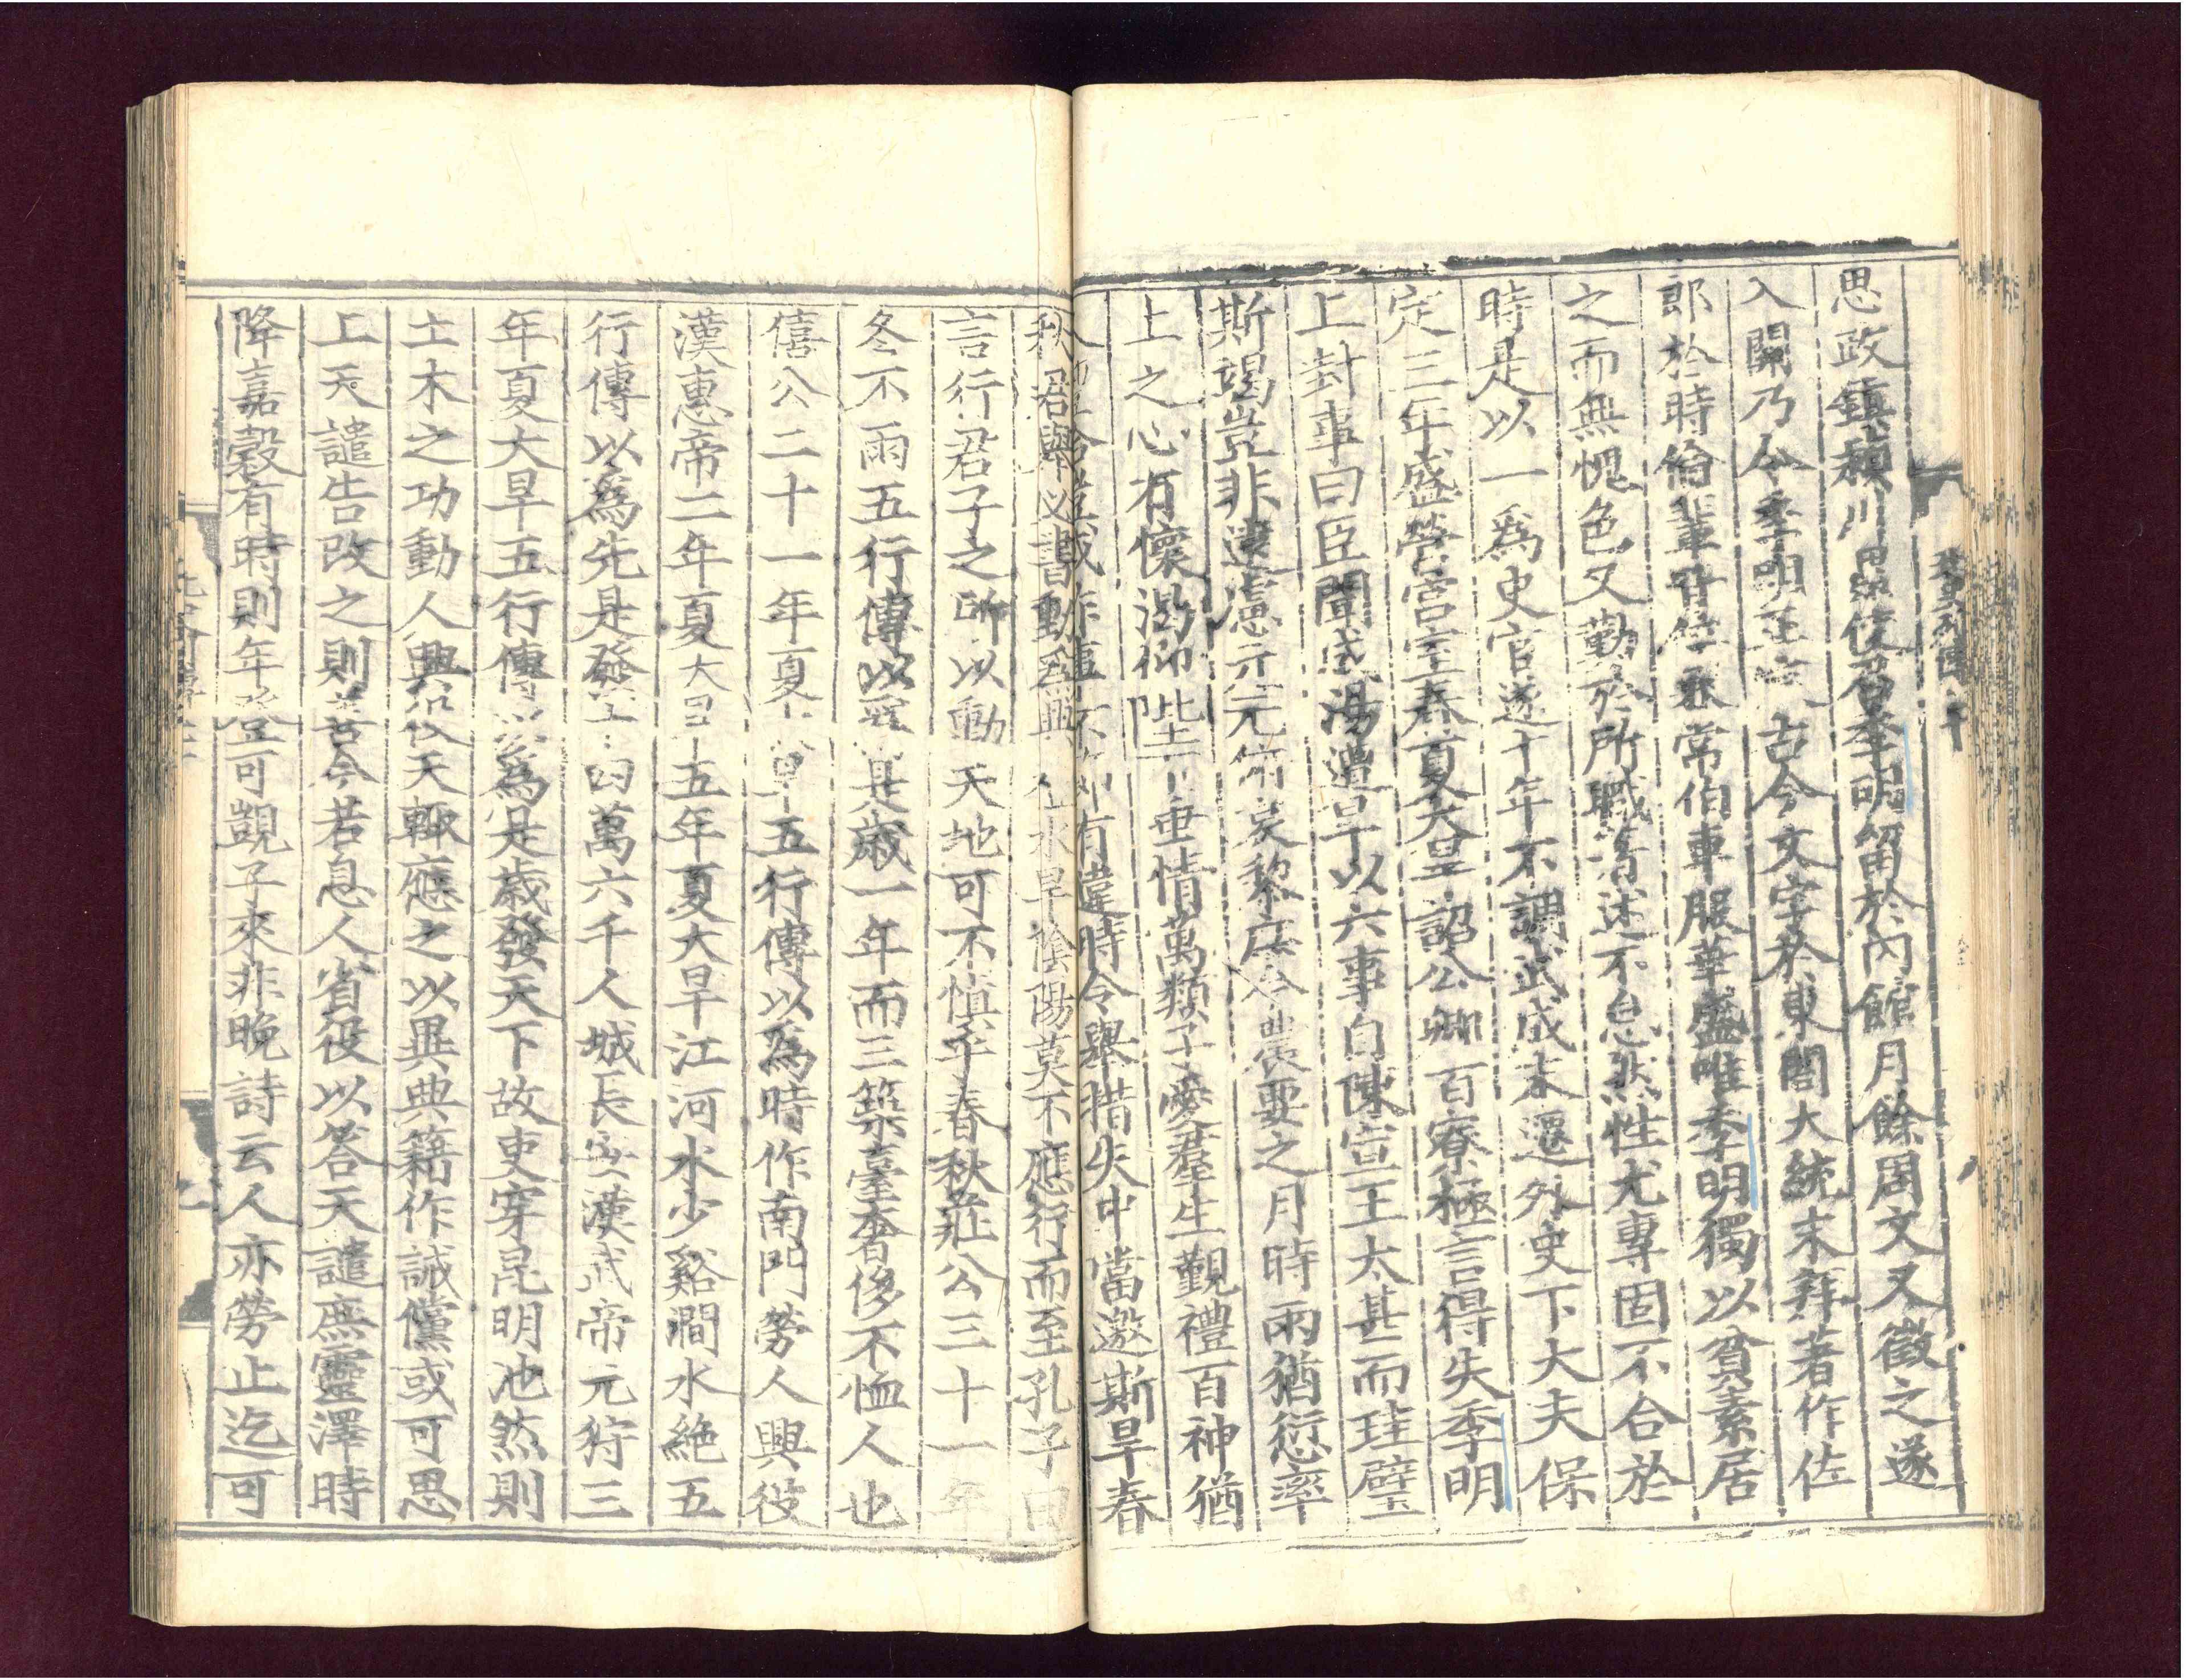 思政鎮潁川思政復召季明留於內館月餘周文又徵之遂
入關乃令季明正 古今文字於東閣大統末拜著作佐
郎於時倫輩皆位兼常伯車服華盛唯季明獨以貧素居
之而無愧色又勤於所職著述不怠然性尤專固不合於
時是以一爲史官遂十年不調武成末遷外史下大夫保
定三年盛營宮室春夏大旱詔公卿百寮極言得失季明
上封事曰臣聞成湯遭旱以六事自陳宣王太甚而珪璧
斯竭豈非遠慮元元俯哀黎庶今農要之月時雨猶愆率
土之心有懷渴仰陛下垂情萬類子愛羣生覲禮百神猶
不 有違時令舉措失中當邀斯旱春
秋君舉必書動爲典 水旱陰陽莫不應行而至孔子曰
言行君子之所以動天地可不慎乎春秋莊公三十一年
冬不雨五行傳以爲是歲一年而三築臺奢侈不恤人也
僖公二十一年夏大旱五行傳以爲時作南門勞人興役
漢惠帝二年夏大旱五年夏大旱江河水少谿澗水絶五
行傳以爲先是發 四萬六千人城長安漢武帝元狩三
年夏大旱五行傳以爲是歲發天下故吏穿昆明池然則
土木之功動人興役天輒應之以異典籍作誡儻或可思
上天譴告改之則善今若息人省役以答天譴庶靈澤時
降嘉穀有時則年登可覬子來非晚詩云人亦勞止迄可